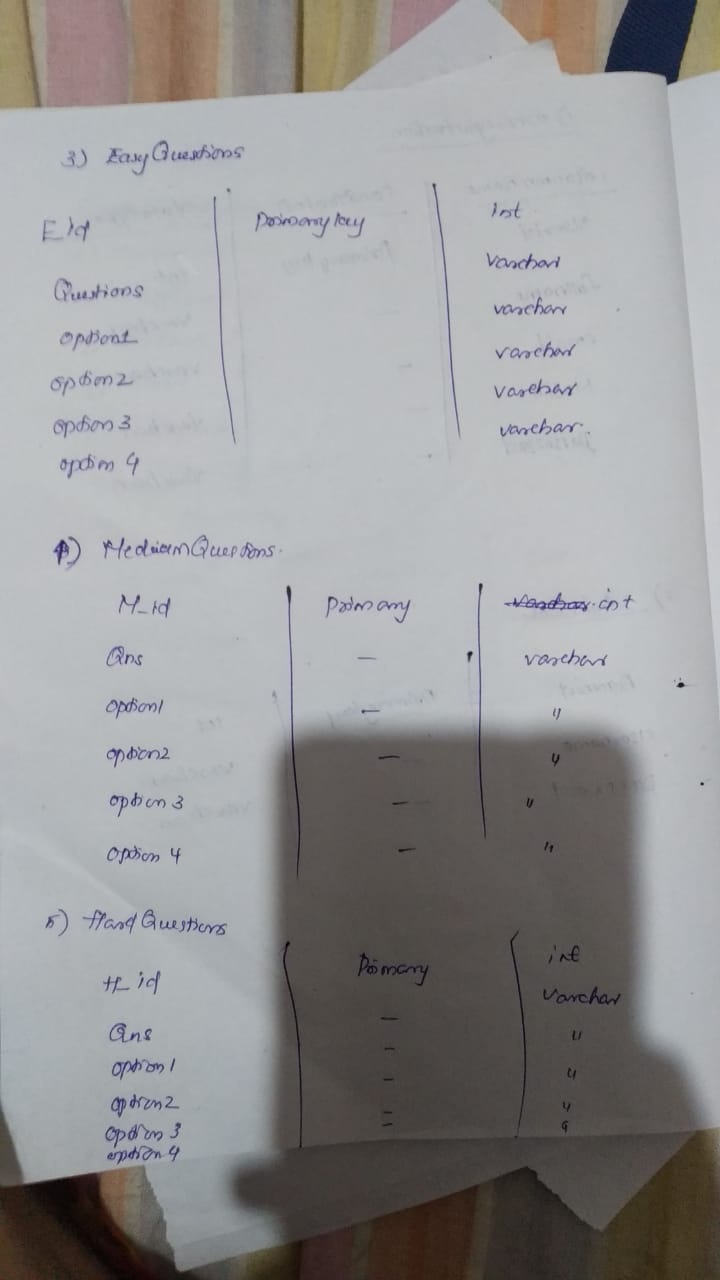 3) Easy Questions
Eid Primary key int
Questions varchar
option1 varchar
option2 varchar
option 3 varchar
option 4 varchar.
4) Medium Questions.
M_id Primary varchar int
Qns — varchar
option1 — "
option2 — "
option 3 — "
option 4 — "
5) Hard Questions
H_id Primary int
Qns — varchar
option 1 — "
option2 — "
option 3 — "
option 4 — "